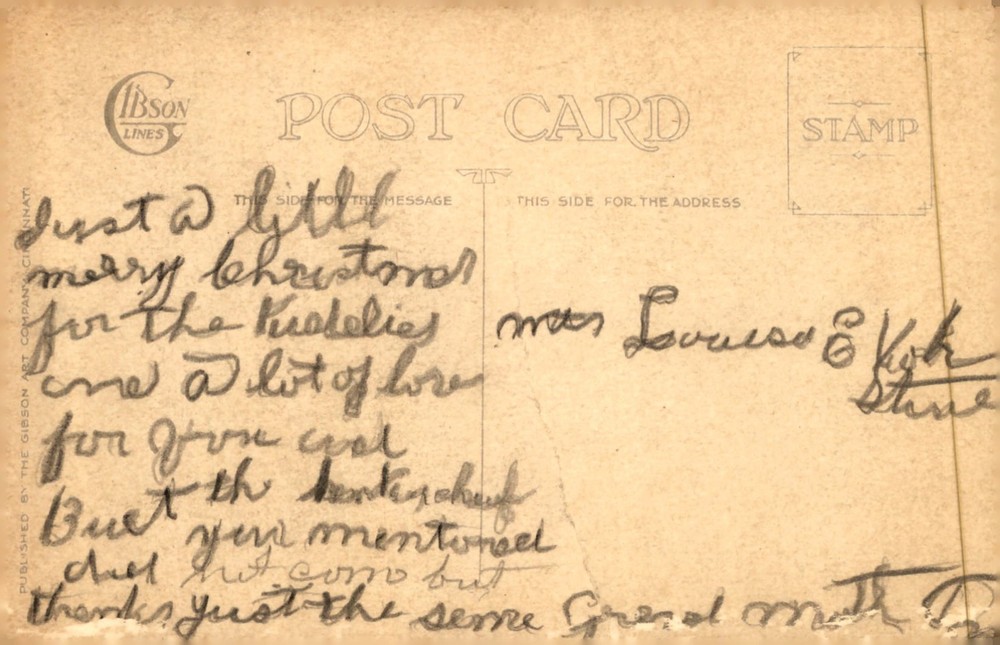 GIBSON
LINES
POST CARD
STAMP
THIS SIDE FOR THE MESSAGE
THIS SIDE FOR THE ADDRESS
PUBLISHED BY THE GIBSON ART COMPANY, CINCINNATI
Just a little
merry Christmas
for the Kiddies
and a lot of love
for you and
But th hankerchief
you mentioned
did not com but
thanks just the same Grand moth
mrs Louisa E